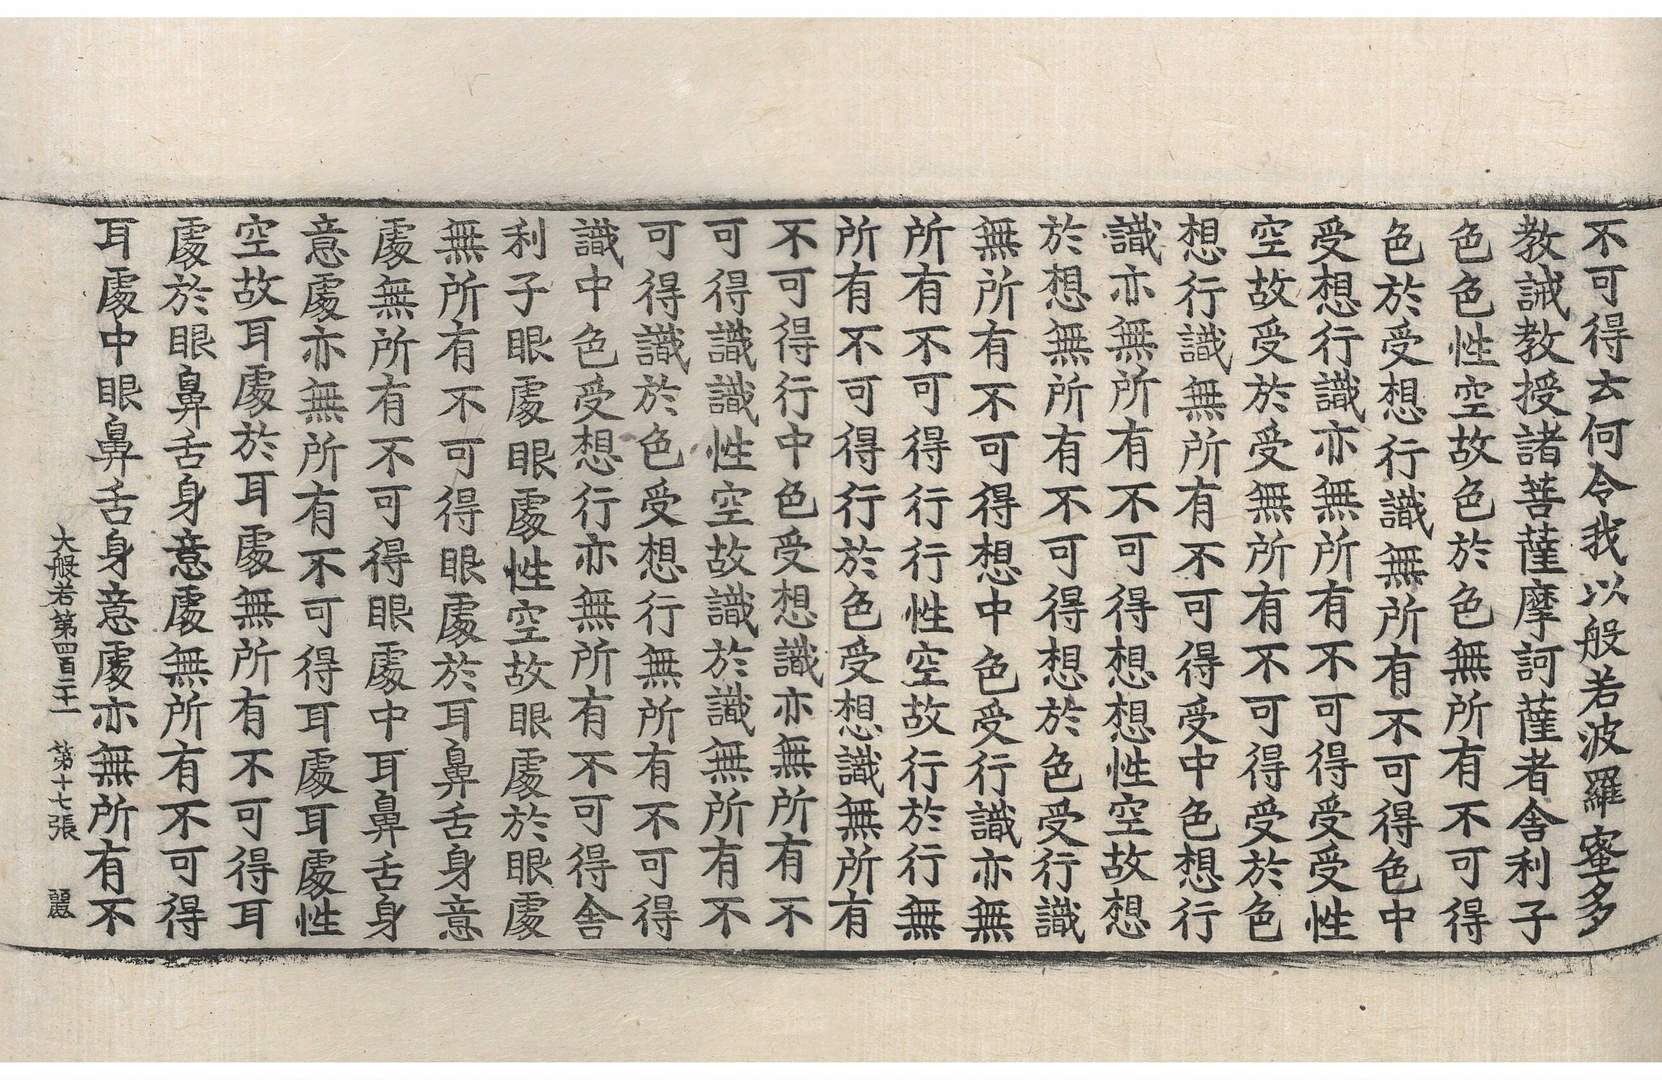 不可得去何令我以般若波羅蜜多
教誡教授諸菩薩摩訶薩者舍利子
色色性空故色於色無所有不可得
色於受想行識無所有不可得色中
受想行識亦無所有不可得受受性
空故受於受無所有不可得受於色
想行識無所有不可得受中色想行
識亦無所有不可得想想性空故想
於想無所有不可得想於色受行識
無所有不可得想中色受行識亦無
所有不可得行行性空故行於行無
所有不可得行於色受想識無所有
不可得行中色受想識亦無所有不
可得識識性空故識於識無所有不
可得識於色受想行無所有不可得
識中色受想行亦無所有不可得舍
利子眼處眼處性空故眼處於眼處
無所有不可得眼處於耳鼻舌身意
處無所有不可得眼處中耳鼻舌身
意處亦無所有不可得耳處耳處性
空故耳處於耳處無所有不可得耳
處於眼鼻舌身意處無所有不可得
耳處中眼鼻舌身意處亦無所有不
大般若第四百二十一 第十七張 麗